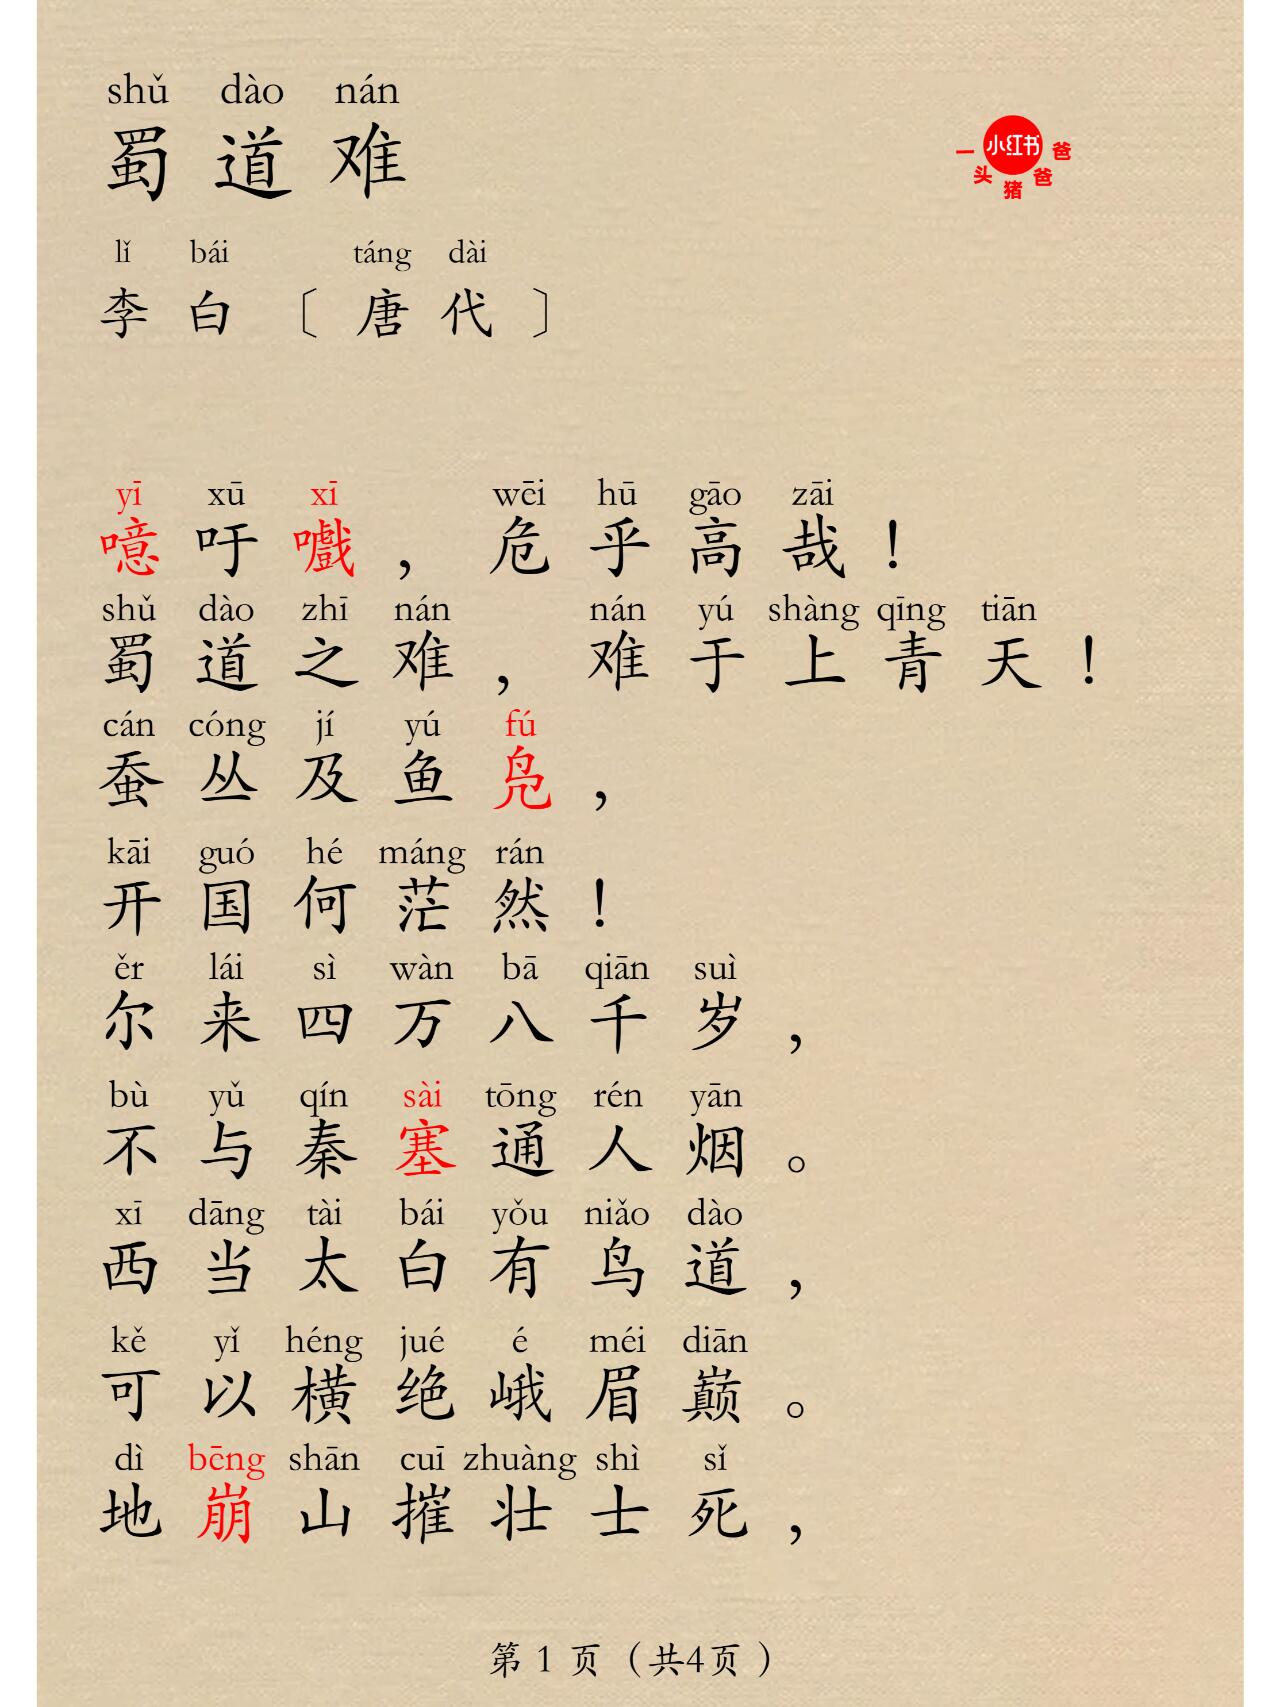 shǔ dào nán
蜀道难
小红书
一头猪爸爸
lǐ bái táng dài
李白〔唐代〕
yī xū xī wēi hū gāo zāi
噫吁嚱，危乎高哉！
shǔ dào zhī nán nán yú shàng qīng tiān
蜀道之难，难于上青天！
cán cóng jí yú fú
蚕丛及鱼凫，
kāi guó hé máng rán
开国何茫然！
ěr lái sì wàn bā qiān suì
尔来四万八千岁，
bù yǔ qín sài tōng rén yān
不与秦塞通人烟。
xī dāng tài bái yǒu niǎo dào
西当太白有鸟道，
kě yǐ héng jué é méi diān
可以横绝峨眉巅。
dì bēng shān cuī zhuàng shì sǐ
地崩山摧壮士死，
第 1 页（共4页）